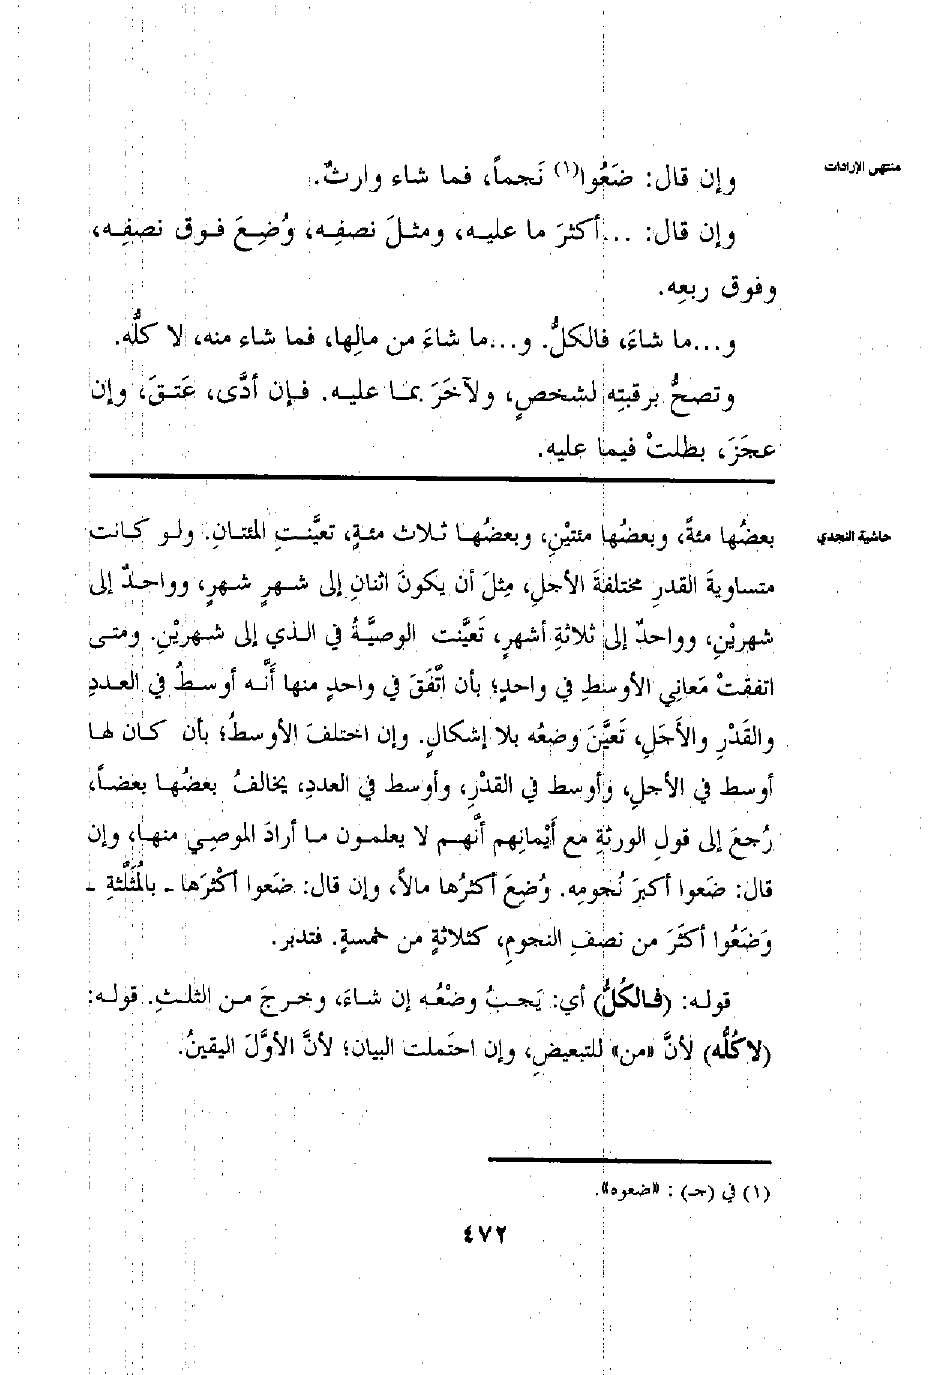 منتهى الإرادات
وإن قال: ضَعُوا(١) نَجماً، فما شاء وارثٌ.
وإن قال: ...أكثرَ ما عليه، ومثلَ نصفِه، وُضِعَ فوق نصفِه،
وفوق ربعِه.
و...ما شاءَ، فالكلُّ. و...ما شاءَ من مالِها، فما شاء منه، لا كلُّه.
وتصحُّ برقبتِه لشخصٍ، ولآخَرَ بما عليه. فإن أدَّى، عَتقَ، وإن
عجَزَ، بطلتْ فيما عليه.
حاشية النجدي
بعضُها مئةً، وبعضُها مئتيْنِ، وبعضُها ثلاث مئةٍ، تعيَّنتِ المئتانِ. ولو كانت
متساويةَ القدرِ مختلفةَ الأجلِ، مِثلَ أن يكونَ اثنانِ إلى شهرٍ شهرٍ، وواحدٌ إلى
شهريْنِ، وواحدٌ إلى ثلاثةِ أشهرٍ، تَعيَّنت الوصيَّةُ في الذي إلى شهريْنِ. ومتى
اتفقتْ مَعانِي الأوسطِ في واحدٍ؛ بأن اتَّفَقَ في واحدٍ منها أنَّه أوسطُ في العددِ
والقَدْرِ والأَجلِ، تَعيَّنَ وضعُه بلا إشكالٍ. وإن اختلفَ الأوسطُ؛ بأن كان لها
أوسط في الأجلِ، وأوسط في القدْرِ، وأوسط في العددِ، يخالفُ بعضُها بعضاً،
رُجعَ إلى قولِ الورثةِ مع أَيْمانِهم أنَّهم لا يعلمون ما أرادَ الموصِي منها، وإن
قال: ضَعوا أكبرَ نُجومِه. وُضِعَ أكثرُها مالاً، وإن قال: ضَعوا أكْثرَها ـ بالمُثَلَّثةِ ـ
وَضَعُوا أكثَرَ من نصفِ النجومِ، كثلاثةٍ من خمسةٍ. فتدبر.
قوله: (فالكُلُّ) أي: يَجبُ وضْعُه إن شاءَ، وخرجَ من الثلثِ. قوله:
(لا كُلُّه) لأنَّ «من» للتبعيضِ، وإن احتَملت البيان؛ لأنَّ الأوَّلَ اليقينُ.
(١) في (جـ) : «ضعوه».
٤٧٢